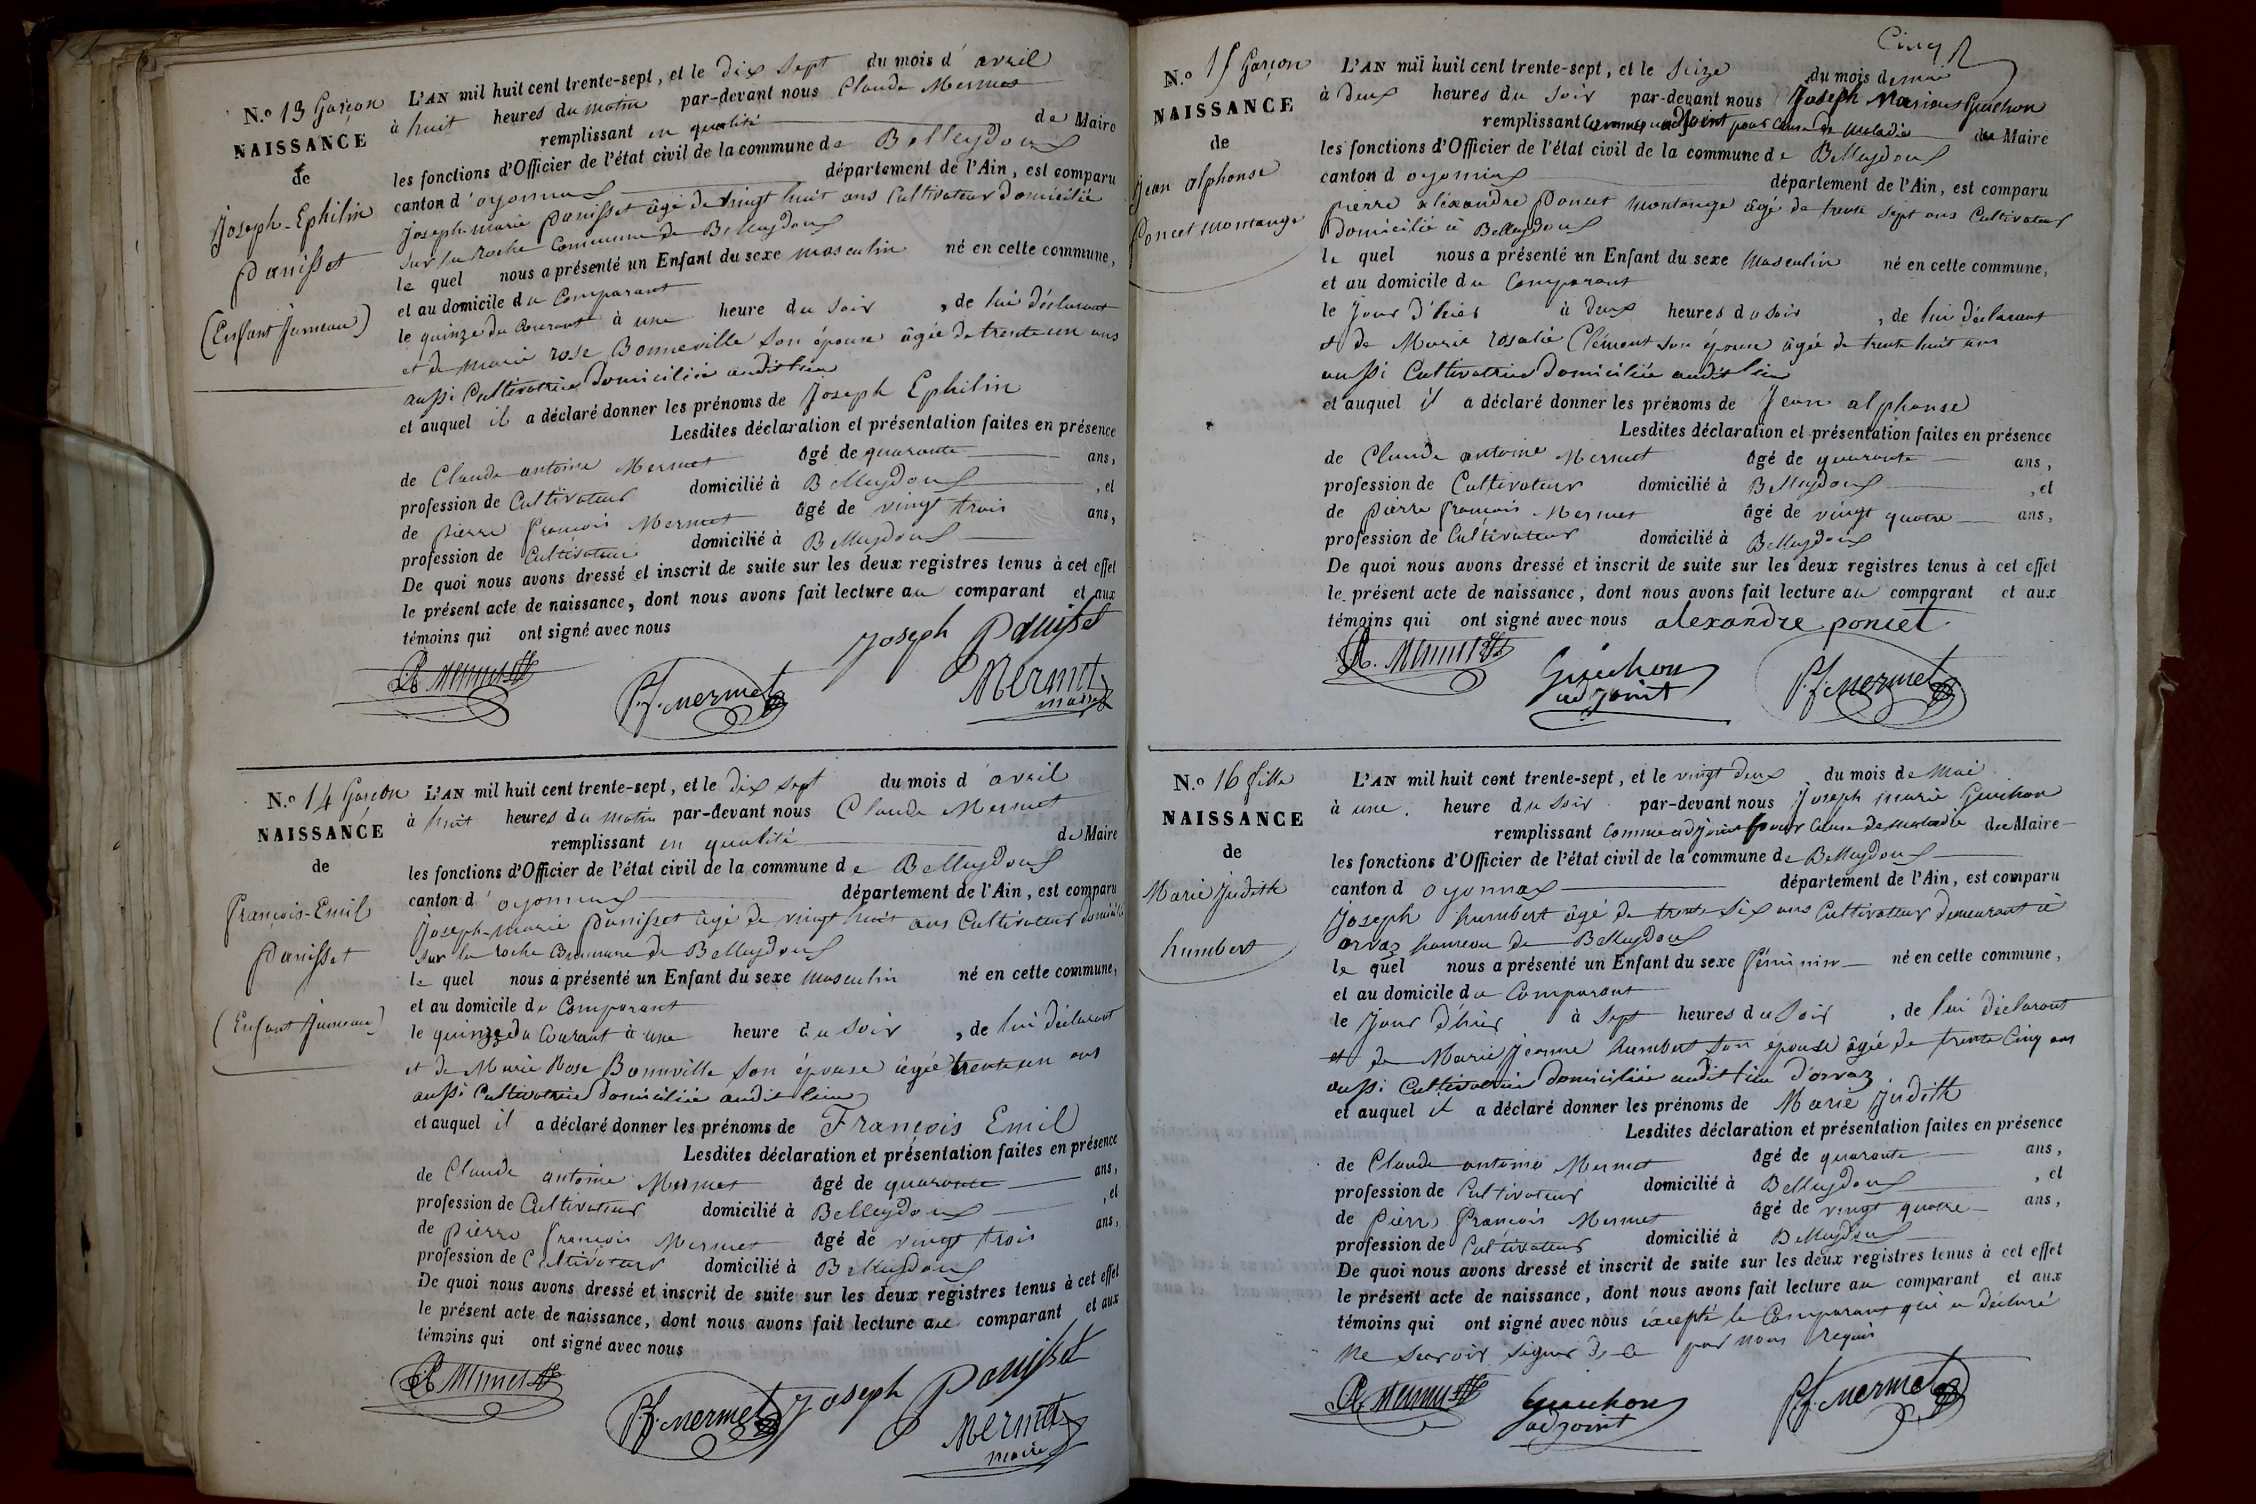 N.º 13 Garçon
NAISSANCE
de
Joseph-Ephilin
Panisset
(Enfant Jumeau)
L'AN mil huit cent trente-sept, et le dix sept du mois d'avril
à huit heures du matin par-devant nous Claude Mermet
remplissant en qualité de Maire
les fonctions d'Officier de l'état civil de la commune de Belleydoux
canton d'oyonnax département de l'Ain, est comparu
Joseph-marie Panisset âgé de vingt huit ans Cultivateur domicilié
sur la roche Commune de Belleydoux
le quel nous a présenté un Enfant du sexe masculin né en cette commune,
et au domicile du Comparant
le quinze du Courant à une heure du soir, de lui déclarant
et de marie rose Bonneville son épouse âgée de trente un ans
aussi Cultivatrice domiciliée audit lieu
et auquel il a déclaré donner les prénoms de Joseph Ephilin
Lesdites déclaration et présentation faites en présence
de Claude antoine Mermet âgé de quarante ans,
profession de Cultivateur domicilié à Belleydoux, et
de pierre françois Mermet âgé de vingt trois ans,
profession de Cultivateur domicilié à Belleydoux
De quoi nous avons dressé et inscrit de suite sur les deux registres tenus à cet effet
le présent acte de naissance, dont nous avons fait lecture au comparant et aux
témoins qui ont signé avec nous
Joseph Panisset
Mermet
P.f. Mermet
Mermet
maire
N.º 14 Garçon
NAISSANCE
de
françois-Emil
Panisset
(Enfant Jumeau)
L'AN mil huit cent trente-sept, et le dix sept du mois d'avril
à huit heures du matin par-devant nous Claude Mermet
remplissant en qualité de Maire
les fonctions d'Officier de l'état civil de la commune de Belleydoux
canton d'oyonnax département de l'Ain, est comparu
Joseph-marie Panisset âgé de vingt huit ans Cultivateur domicilié
sur la roche Commune de Belleydoux
le quel nous a présenté un Enfant du sexe masculin né en cette commune,
et au domicile du Comparant
le quinze du Courant à une heure du soir, de lui déclarant
et de Marie Rose Bonneville son épouse âgée trente un ans
aussi Cultivatrice domiciliée audit lieu
et auquel il a déclaré donner les prénoms de François Emil
Lesdites déclaration et présentation faites en présence
de Claude antoine Mermet âgé de quarante ans,
profession de Cultivateur domicilié à Belleydoux, et
de pierre françois Mermet âgé de vingt trois ans,
profession de Cultivateur domicilié à Belleydoux
De quoi nous avons dressé et inscrit de suite sur les deux registres tenus à cet effet
le présent acte de naissance, dont nous avons fait lecture au comparant et aux
témoins qui ont signé avec nous
Mermet
P.f. Mermet Joseph Panisset
Mermet
maire
Cinq
N.º 15 Garçon
NAISSANCE
de
Jean alphonse
Poncet montange
L'AN mil huit cent trente-sept, et le seize du mois de mai
à deux heures du soir par-devant nous Joseph Marie Guichon
remplissant comme adjoint pour Cause de maladie du Maire
les fonctions d'Officier de l'état civil de la commune de Belleydoux
canton d'oyonnax département de l'Ain, est comparu
pierre alexandre Poncet montange âgé de trente sept ans Cultivateur
domicilié à Belleydoux
le quel nous a présenté un Enfant du sexe masculin né en cette commune,
et au domicile du Comparant
le jour d'hier à deux heures du soir, de lui déclarant
et de Marie rosalie Clément son épouse âgée de trente huit ans
aussi Cultivatrice domiciliée audit lieu
et auquel il a déclaré donner les prénoms de Jean alphonse
Lesdites déclaration et présentation faites en présence
de Claude antoine Mermet âgé de quarante ans,
profession de Cultivateur domicilié à Belleydoux, et
de pierre françois Mermet âgé de vingt quatre ans,
profession de Cultivateur domicilié à Belleydoux
De quoi nous avons dressé et inscrit de suite sur les deux registres tenus à cet effet
le présent acte de naissance, dont nous avons fait lecture au comparant et aux
témoins qui ont signé avec nous alexandre poncet
Mermet
Guichon
adjoint
P.f. Mermet
N.º 16 fille
NAISSANCE
de
Marie Judith
humbert
L'AN mil huit cent trente-sept, et le vingt deux du mois de Mai
à une heure du soir par-devant nous Joseph marie Guichon
remplissant Comme adjoint pour Cause de maladie du Maire
les fonctions d'Officier de l'état civil de la commune de Belleydoux
canton d oyonnax département de l'Ain, est comparu
Joseph humbert âgé de trente six ans Cultivateur demeurant à
orvaz hameau de Belleydoux
le quel nous a présenté un Enfant du sexe féminin né en cette commune,
et au domicile du Comparant
le jour d'hier à sept heures du soir, de lui déclarant
et de Marie Jeanne humbert son épouse âgée de trente Cinq ans
aussi Cultivatrice domiciliée audit lieu d'orvaz
et auquel il a déclaré donner les prénoms de Marie Judith
Lesdites déclaration et présentation faites en présence
de Claude antoine Mermet âgé de quarante ans,
profession de Cultivateur domicilié à Belleydoux, et
de pierre françois Mermet âgé de vingt quatre ans,
profession de Cultivateur domicilié à Belleydoux
De quoi nous avons dressé et inscrit de suite sur les deux registres tenus à cet effet
le présent acte de naissance, dont nous avons fait lecture au comparant et aux
témoins qui ont signé avec nous excepté le Comparant qui a déclaré
ne savoir signer de ce par nous requis
Mermet
Guichon
adjoint
P.f. Mermet